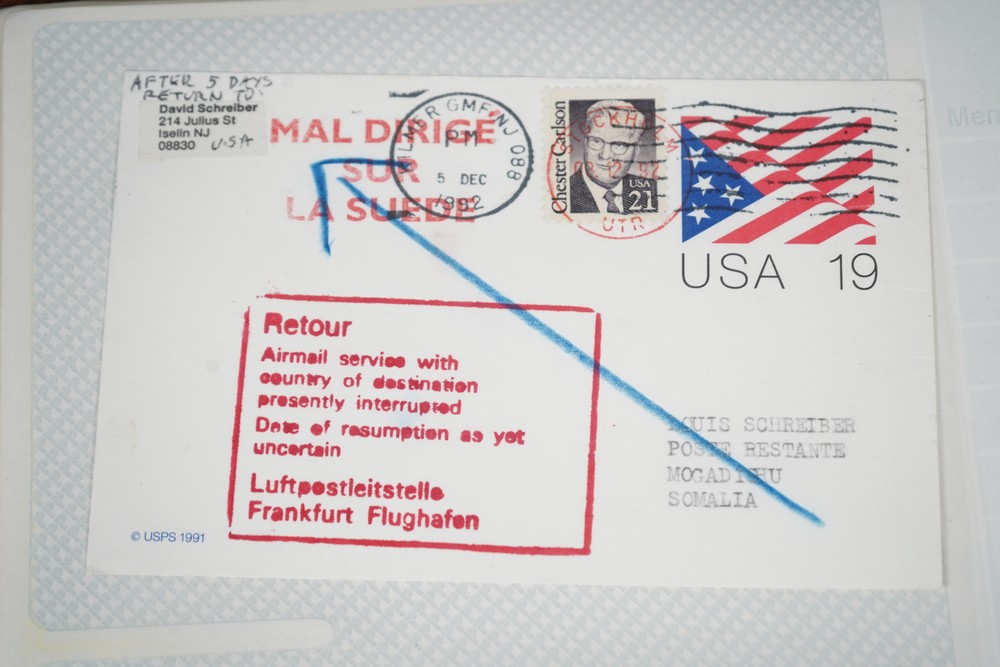 AFTER 5 DAYS
RETURN TO:
David Schreiber
214 Julius St
Iselin NJ
08830 USA
MAL DIRIGÉ
SUR
LA SUÈDE
GMF NJ 088
PM
5 DEC
1992
Chester Carlson
USA
21
UTR
USA 19
Retour
Airmail service with
country of destination
presently interrupted
Date of resumption as yet
uncertain
Luftpostleitstelle
Frankfurt Flughafen
LOUIS SCHREIBER
POSTE RESTANTE
MOGADISHU
SOMALIA
© USPS 1991
Mem